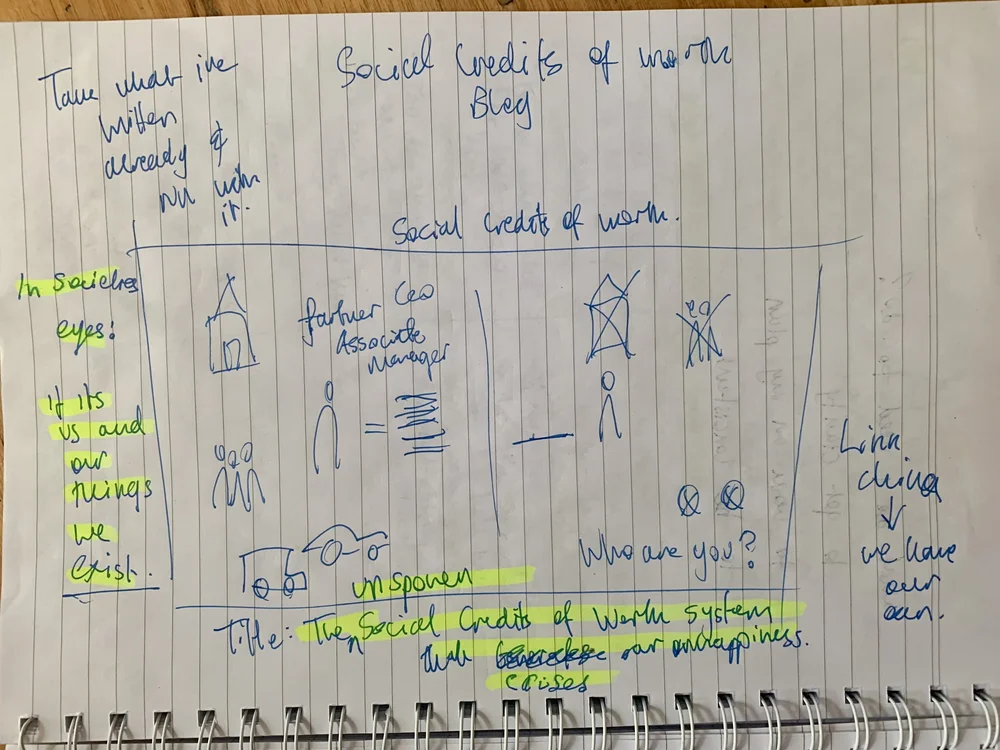 Take what ive
written
already &
run with
it.
Socical Credits of worth
Blog
Social Credits of worth.
In Societies
eyes:
if its
us and
our
things
we
exist.
Partner CEO
Associate
Manager
=
Who are you?
Link
china
↓
we have
our
own.
unspoken
Title: The Social Credits of Worth system
that our unhappiness.
crises